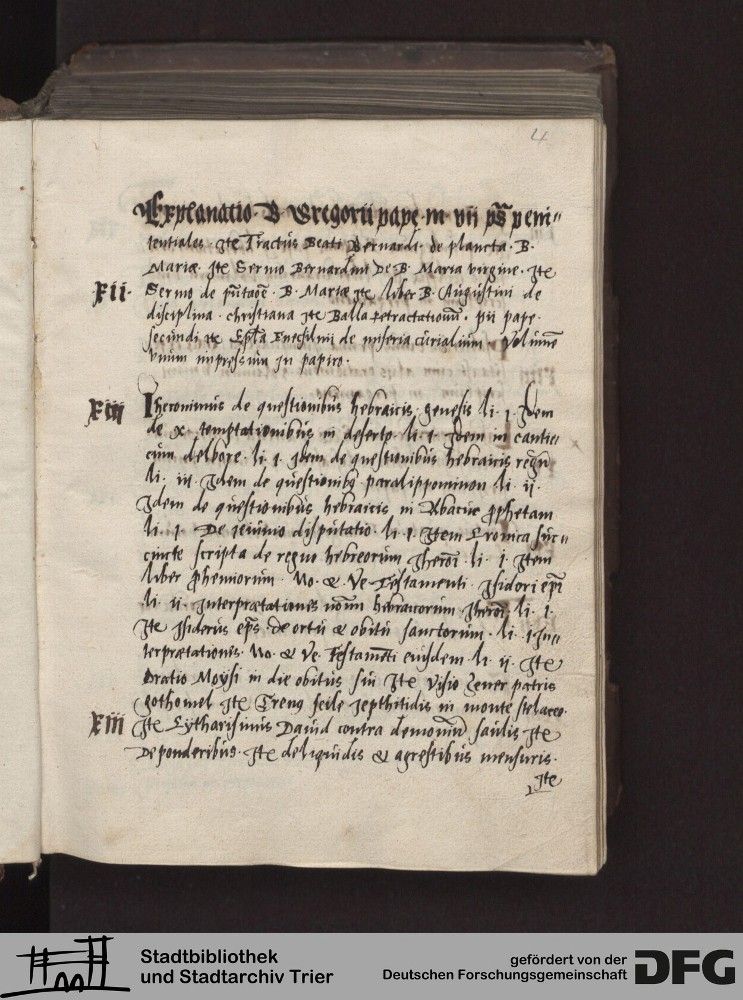 4
Explanatio · B Gregorii pape · in · vii ps̄ peni〃
tentiales · Itē Tractus Beati Bernardi · de planctu · B ·
Mariæ · Itē Sermo Bernardini De B · Maria virgine · Itē
xii · Sermo de · B · Mariæ Itē liber B · Augustini de
disciplina · christiana Itē Bulla Retractationū · pii pape ·
secundi itē Ep̄la de miseria curialium · Volumē
vnum impressum in papiro ·
xiii Iheronimus de questionibus hebraicis · genesis li · 1 · Idem
de x · temptationibus in deserto · li · 1 · Idem in cantic〃
cum delbore · li · 1 · Idem de questionibus hebraicis regū
li · iii · Idem de questionibꝫ paralippominon li · ii ·
Idem de questionibus hebraicis in Abacuc prophetam
li · 1 · De ieiunio disputatio · li · 1 · Item Cronica suc〃
cincte scripta de regno hebreorum Iheroī · li · 1 · Item
liber prohemiorum · No · & Ve · Testamenti · Isidori ep̄i
li · ii · Interprætationes noīm hebraicorum Iheroī · li · 1 ·
Itē Isiderus ep̄s · de ortu & obitu sanctorum · li · 1 · In〃
terprætationis · No · & Ve · Testamēti eiusdem li · ii · Itē
Oratio Moysi in die obitus sui Itē Visio Zener patris
gothomel Itē Treng seile Jepthitidis in monte stelaceo ·
xiiii Itē Cytharismus Dauid contra demoniū saulis Itē
De ponderibus · Itē de liquidis & agrestibus mensuris ·
Itē
Stadtbibliothek
und Stadtarchiv Trier
gefördert von der
Deutschen Forschungsgemeinschaft
DFG